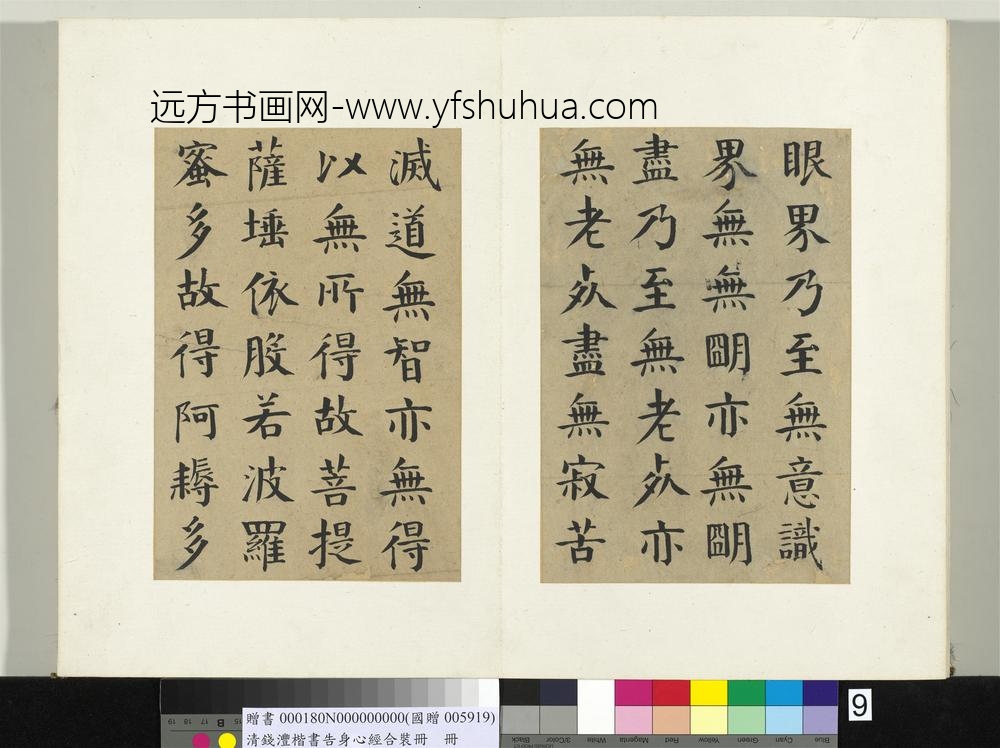 远方书画网-www.yfshuhua.com
眼界乃至無意識
界無無朙亦無朙
盡乃至無老𣦸亦
無老𣦸盡無寂苦
滅道無智亦無得
以無所得故菩提
薩埵依股若波羅
蜜多故得阿耨多
贈書 000180N000000000(國贈 005919)
清錢灃楷書告身心經合裝冊 冊
9
Black
3/Color
White
Magenta
Red
Yellow
Green
Cyan
Blue
19 18 17 B 16 15